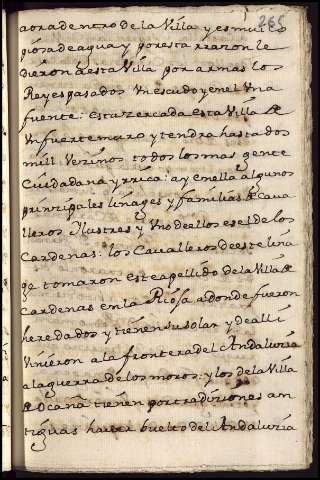 265
aora dentro de la Villa y es mui co
piosa de agua y por esta rrazon le
dieron a esta Villa por armas los
Reyes pasados Un escudo y en el Una
fuente: esta zercada esta Villa de
Un fuerte muro y tendra hasta dos
mill Vezinos todos los mas gente
Ciudadana y rrica: ay en ella algunos
prinzipales linages y familias de Cava
lleros Ilustres y Uno de ellos es el de los
Cardenas: los Cavalleros de este lina
ge tomaron este apellido de la Villa de
Cardenas en la Riosa adonde fueron
heredados y tienen su solar y de alli
Vinieron a la frontera del Andaluzia
a la guerra de los moros: y los de la Villa
de Ocaña tienen por tradiziones an
tiguas haver buelto del Andaluzia